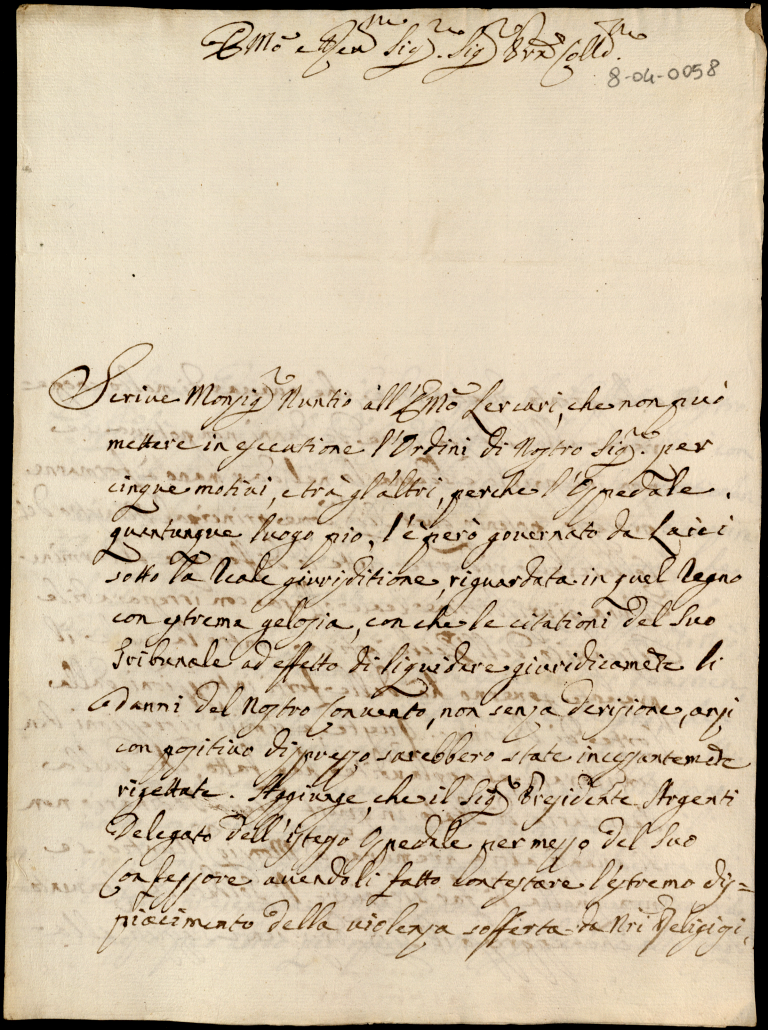 Emo e Rev.mo Sig.re Sig.re Prne Colmo
8-04-0058
Scrive Monsig.r Nuntio all'Emo Lercari, che non può
mettere in esecutione l'Ordini di Nostro Sig.re per
cinque motivi, e trà gl'altri, perche l'Ospedale,
quantunque luogo pio, l'è però governato da Laici
sotto la Reale giurisditione, riguardata in quel Regno
con estrema gelosia, con che le citationi del Suo
Tribunale ad effetto di liquidare giuridicamte li
danni del Nostro Convento, non senza derisione, anzi
con positivo disprezzo sarebbero state incessantemte
rigettate. Aggiunge, che il Sig.r Presidente Argenti
Delegato dell'istesso Ospedale per mezzo del Suo
Confessore avendoli fatto contestare l'estremo dis=
piacimento della violenza sofferta da Nri Religiosi,